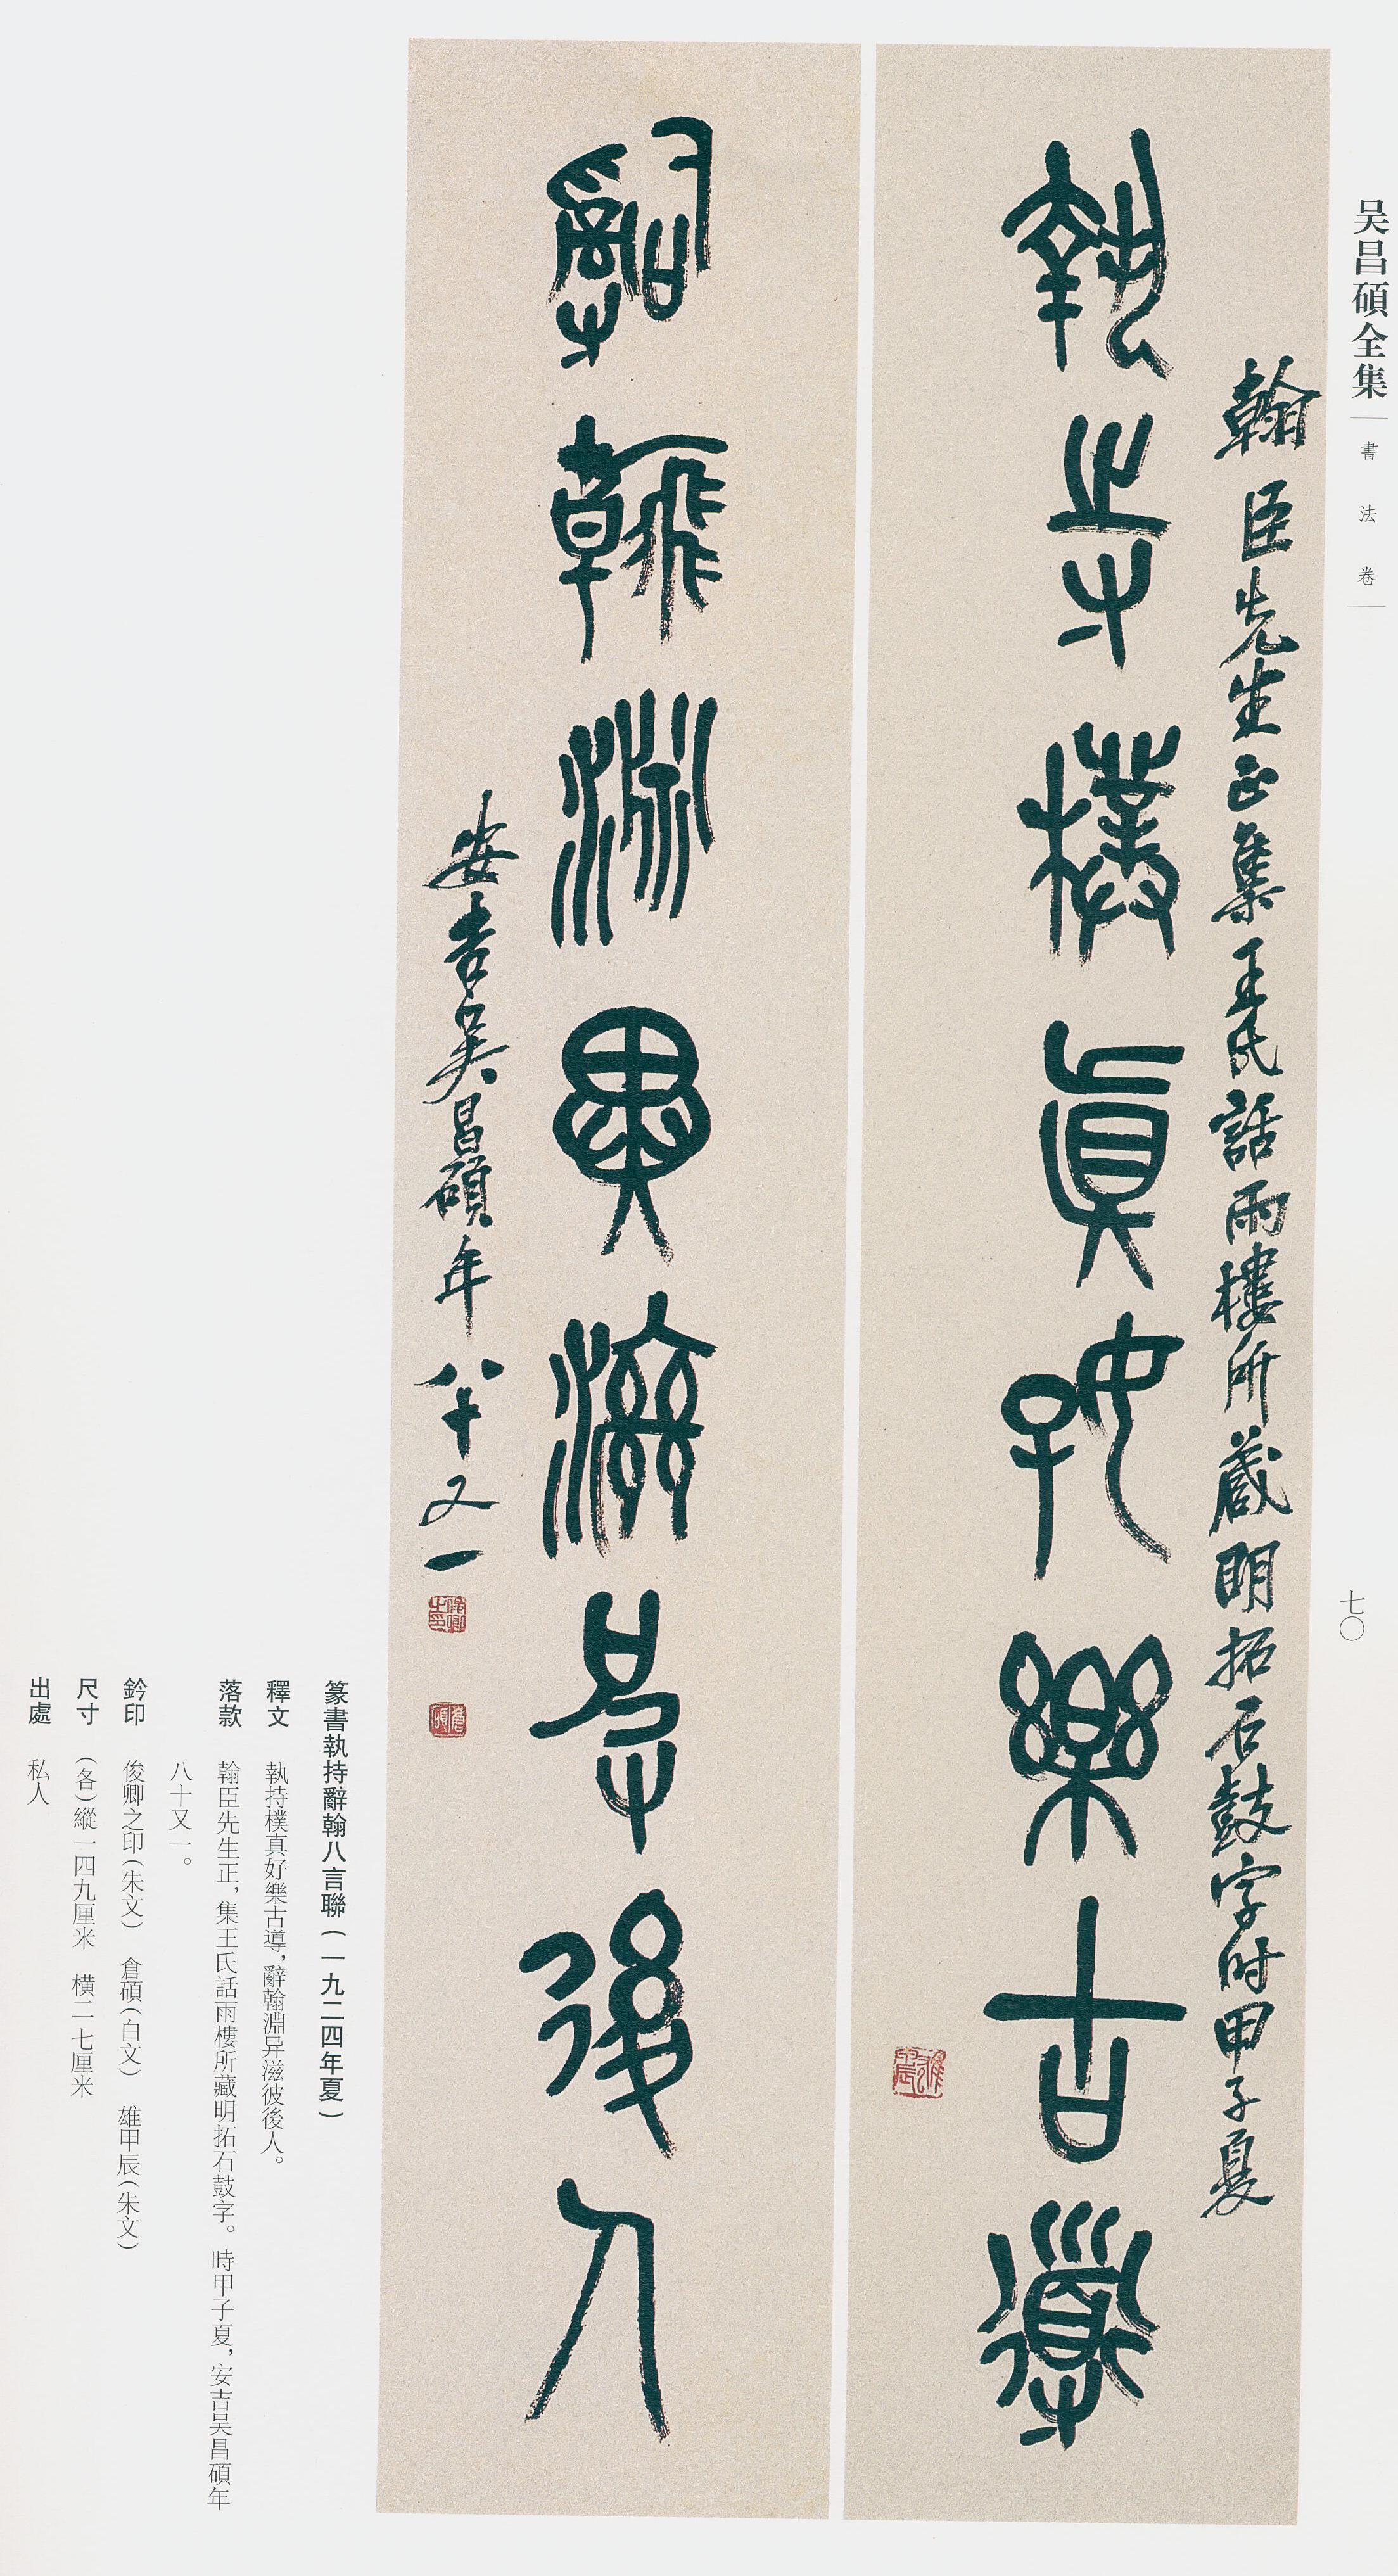 吴昌碩全集
書法卷
七〇
翰臣先生正集王氏話雨樓所藏明拓石鼓字时甲子夏
執寺樸眞好樂古導
雄甲辰
辭翰淵異滋彼後人
安吉吳昌碩年八十又一
俊卿之印
倉碩
篆書執持辭翰八言聯(一九二四年夏)
釋文 執持樸真好樂古導,辭翰淵异滋彼後人。
落款 翰臣先生正,集王氏話雨樓所藏明拓石鼓字。時甲子夏,安吉吴昌碩年
八十又一。
鈐印 俊卿之印(朱文) 倉碩(白文) 雄甲辰(朱文)
尺寸 (各)縱一四九厘米 橫二七厘米
出處 私人